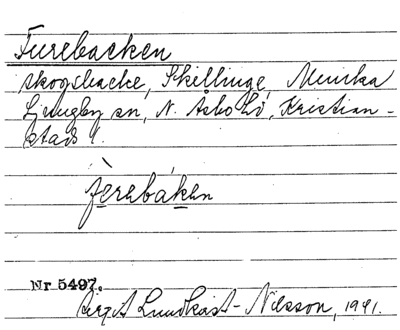 Furebacken
skogsbacke, Skillinge, Munka
Ljungby sn, N. Åsbo hd, Kristian-
stads l.
fu̇rebáken
Nr 5497.
Birgit Lundkvist-Nilsson, 1941.